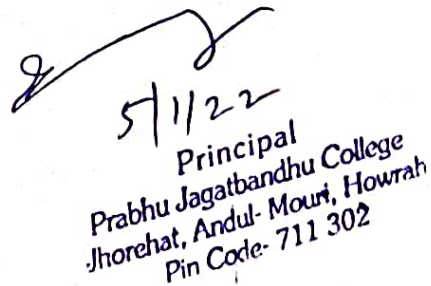 5/1/22
Principal
Prabhu Jagatbandhu College
Jhorehat, Andul- Mouri, Howrah
Pin Code- 711 302